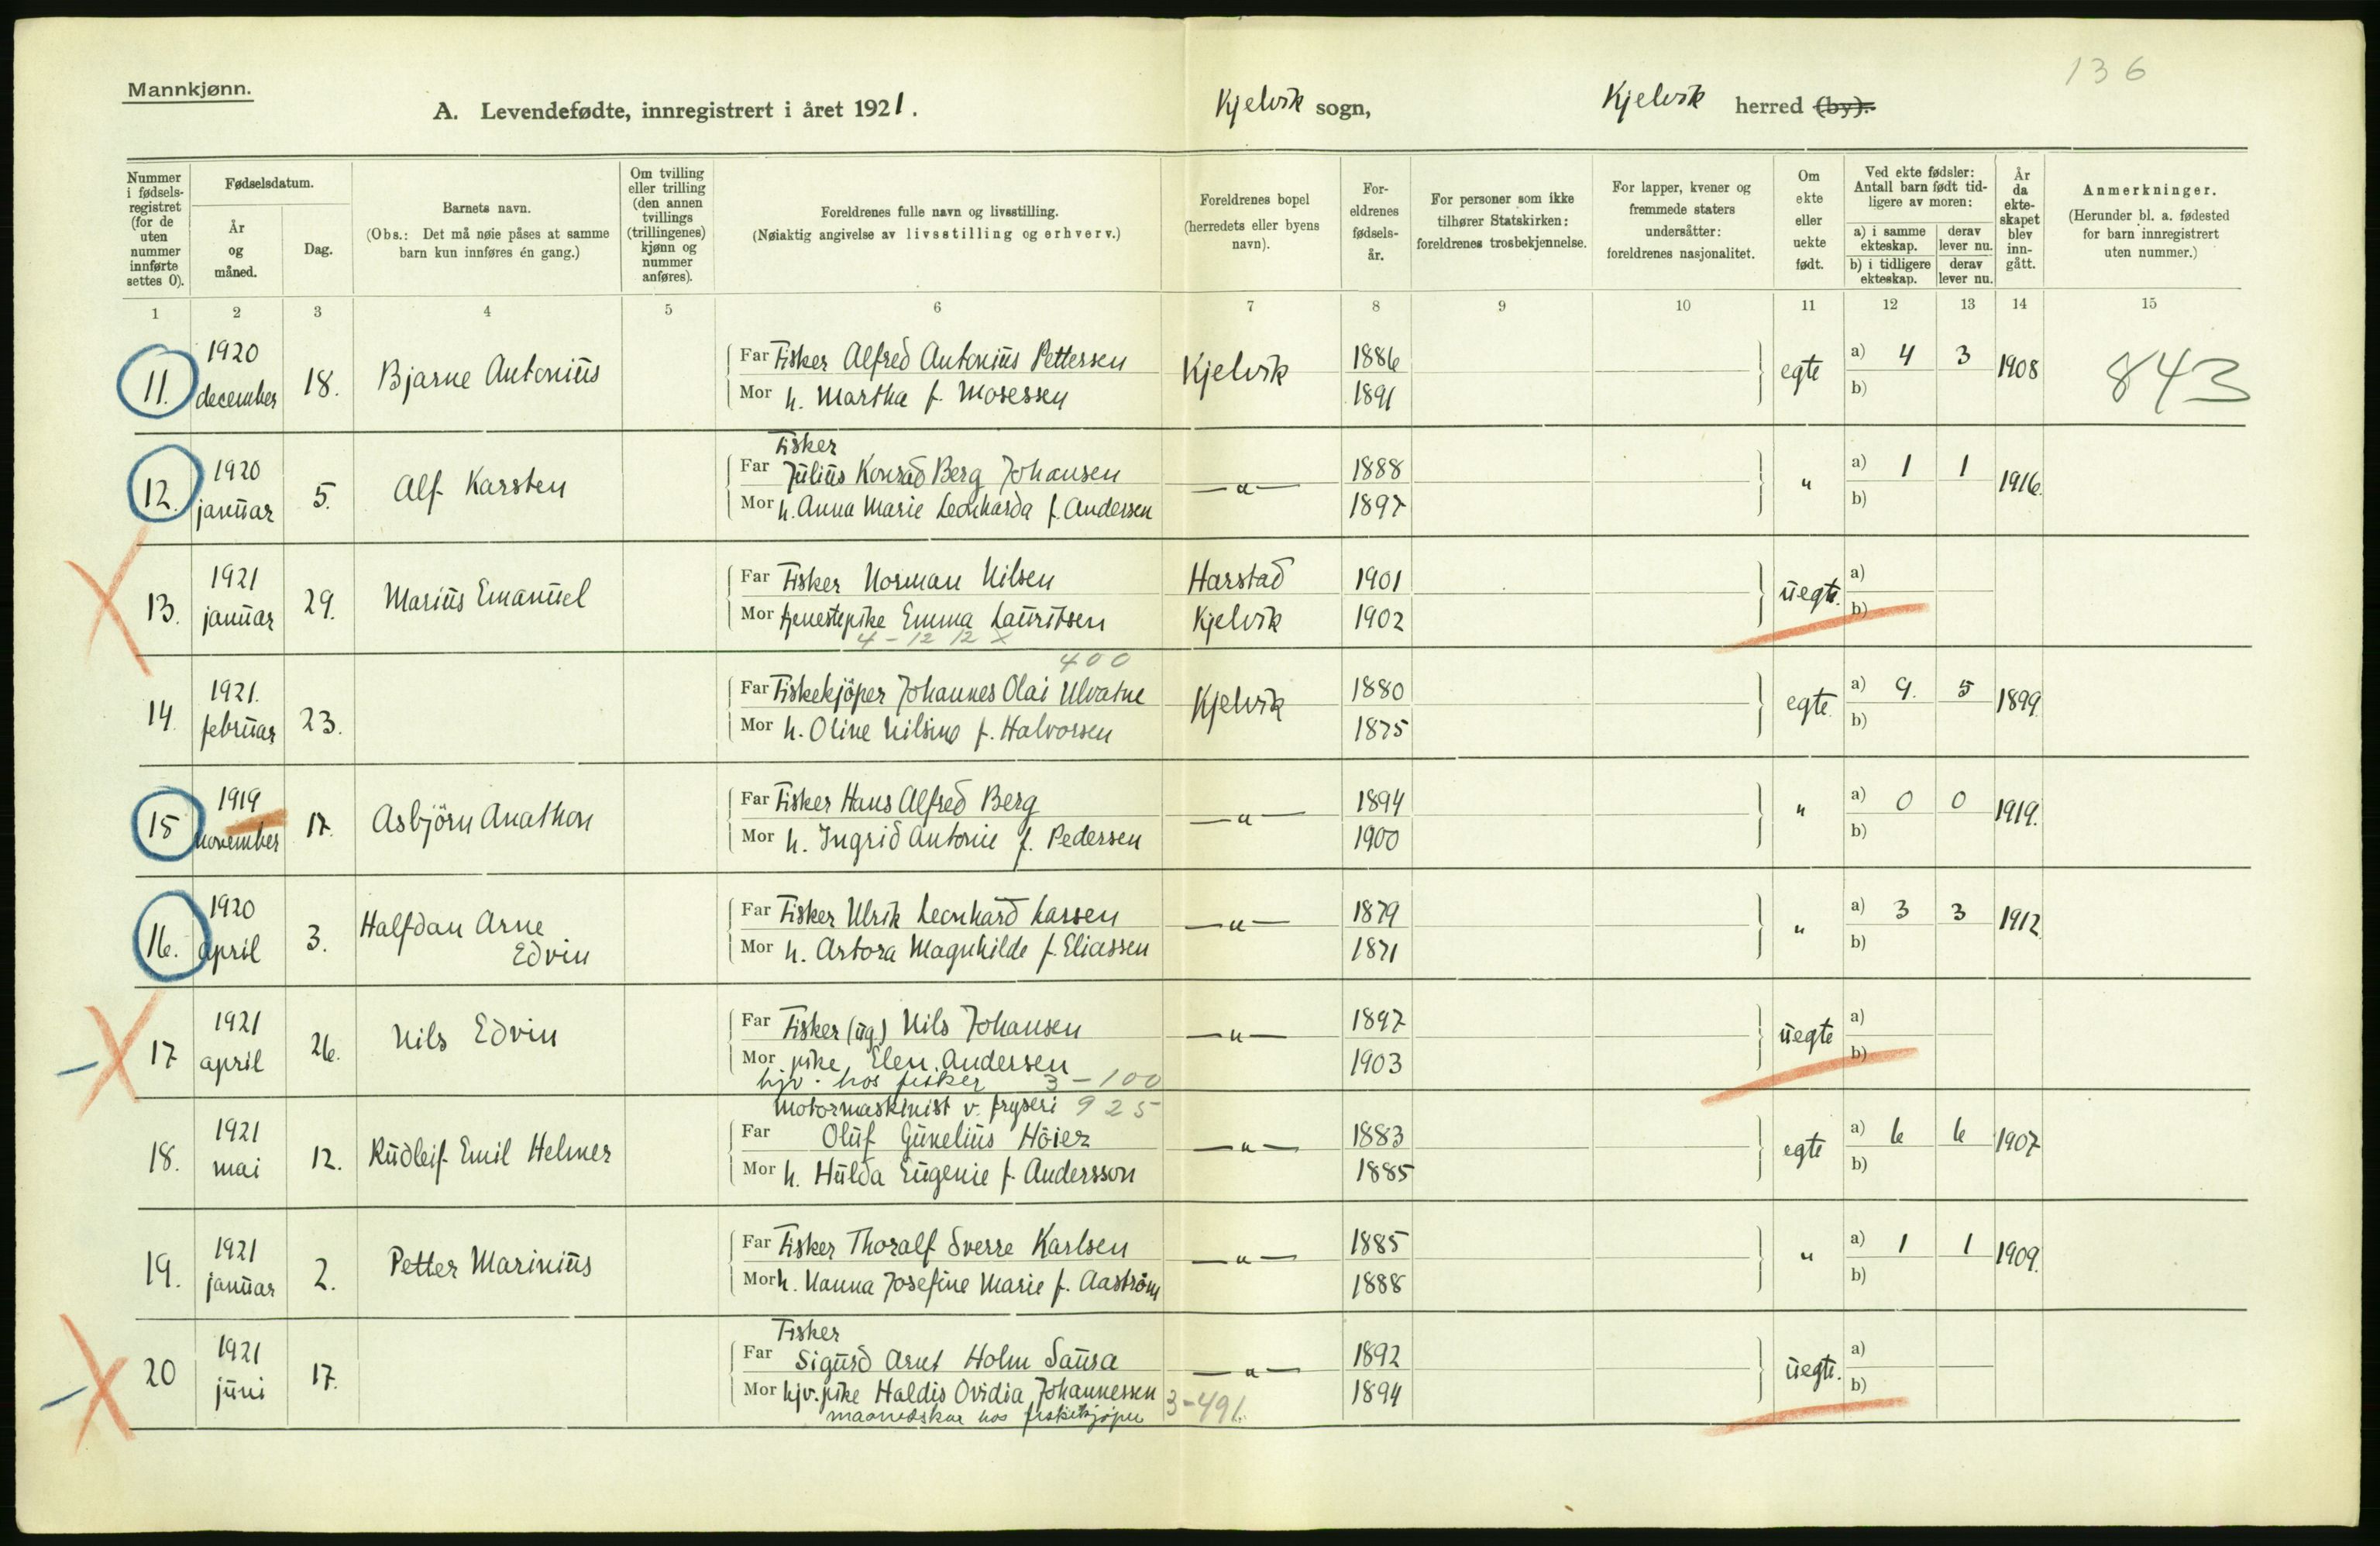 136
Mannkjønn.
A. Levendefødte, innregistrert i året 1921. Kjelvik sogn, Kjelvik herred (by).
Nummer i fødsels-registret (for de uten nummer innførte settes 0).
Fødselsdatum.
År og måned.
Dag.
Barnets navn.
(Obs.: Det må nøie påses at samme barn kun innføres én gang.)
Om tvilling eller trilling (den annen tvillings (trillingenes) kjønn og nummer anføres).
Foreldrenes fulle navn og livsstilling.
(Nøiaktig angivelse av livsstilling og erhverv.)
Foreldrenes bopel (herredets eller byens navn).
For-eldrenes fødsels-år.
For personer som ikke tilhører Statskirken: foreldrenes trosbekjennelse.
For lapper, kvener og fremmede staters undersåtter: foreldrenes nasjonalitet.
Om ekte eller uekte født.
Ved ekte fødsler: Antall barn født tid-ligere av moren:
a) i samme ekteskap. derav lever nu.
b) i tidligere ekteskap. derav lever nu.
År da ekte-skapet blev inn-gått.
Anmerkninger.
(Herunder bl. a. fødested for barn innregistrert uten nummer.)
1 2 3 4 5 6 7 8 9 10 11 12 13 14 15
11. 1920 december 18. Bjarne Antonius
Far Fisker Alfred Antonius Pettersen Kjelvik 1886 egte a) 4 3 1908 843
Mor h. Martha f. Mosessen 1891 b)
12. 1920 januar 5. Alf Karsten
Fisker
Far Julius Konrad Berg Johansen —"— 1888 " a) 1 1 1916.
Mor h. Anna Marie Leonharda f. Andersen 1897 b)
13. 1921 januar 29. Marius Emanuel
Far Fisker Norman Nilsen Harstad 1901 uegte. a)
Mor tjenestepike Emma Lauritsen Kjelvik 1902 b)
4-12 12 x
400
14. 1921. februar 23.
Far Fiskekjöper Johannes Olai Ulvatne Kjelvik 1880 egte. a) 9. 5 1899.
Mor h. Oline Nilsine f. Halvorsen 1875 b)
15 1919 november 17. Asbjörn Anathon
Far Fisker Hans Alfred Berg —"— 1894 " a) 0 0 1919.
Mor h. Ingrid Antonie f. Pedersen 1900 b)
16. 1920 april 3. Halfdan Arne Edvin
Far Fisker Ulrik Leonhard Larsen —"— 1879 " a) 3 3 1912.
Mor h. Artora Magnhilde f. Eliassen 1871 b)
17 1921 april 26. Nils Edvin
Far Fisker (ug) Nils Johansen —"— 1897 uegte a)
Mor pike Elen Andersen 1903 b)
hjv. hos fisker 3-100
Motormaskinist v. fryseri 925
18. 1921 mai 12. Rudleif Emil Helmer
Far Oluf Gunelius Höier —"— 1883 egte a) 6 6 1907
Mor h. Hulda Eugenie f. Andersson 1885 b)
19. 1921 januar 2. Petter Marinius
Far Fisker Thoralf Sverre Karlsen —"— 1885 " a) 1 1 1909.
Mor h. Nanna Josefine Marie f. Aaström 1888 b)
Fisker
20 1921 juni 17.
Far Sigurd Arnt Holm Saura —"— 1892 uegte. a)
Mor hjv. pike Haldis Ovidia Johannessen 3-491. 1894 b)
hos fiskekjöper